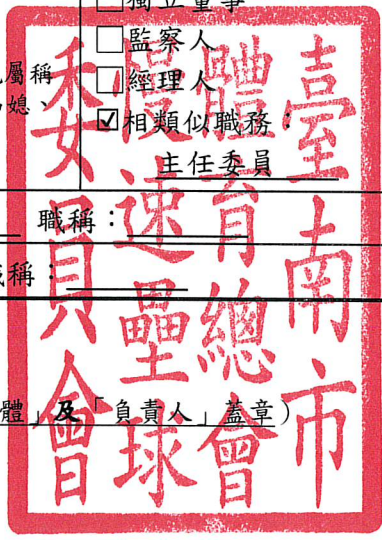 □獨立董事
□監察人
屬稱
□經理人
媳、
☑相類似職務：
主任委員
職稱：
稱：
體」及「負責人」蓋章)
臺南市
體育總會
慢速壘球
委員會